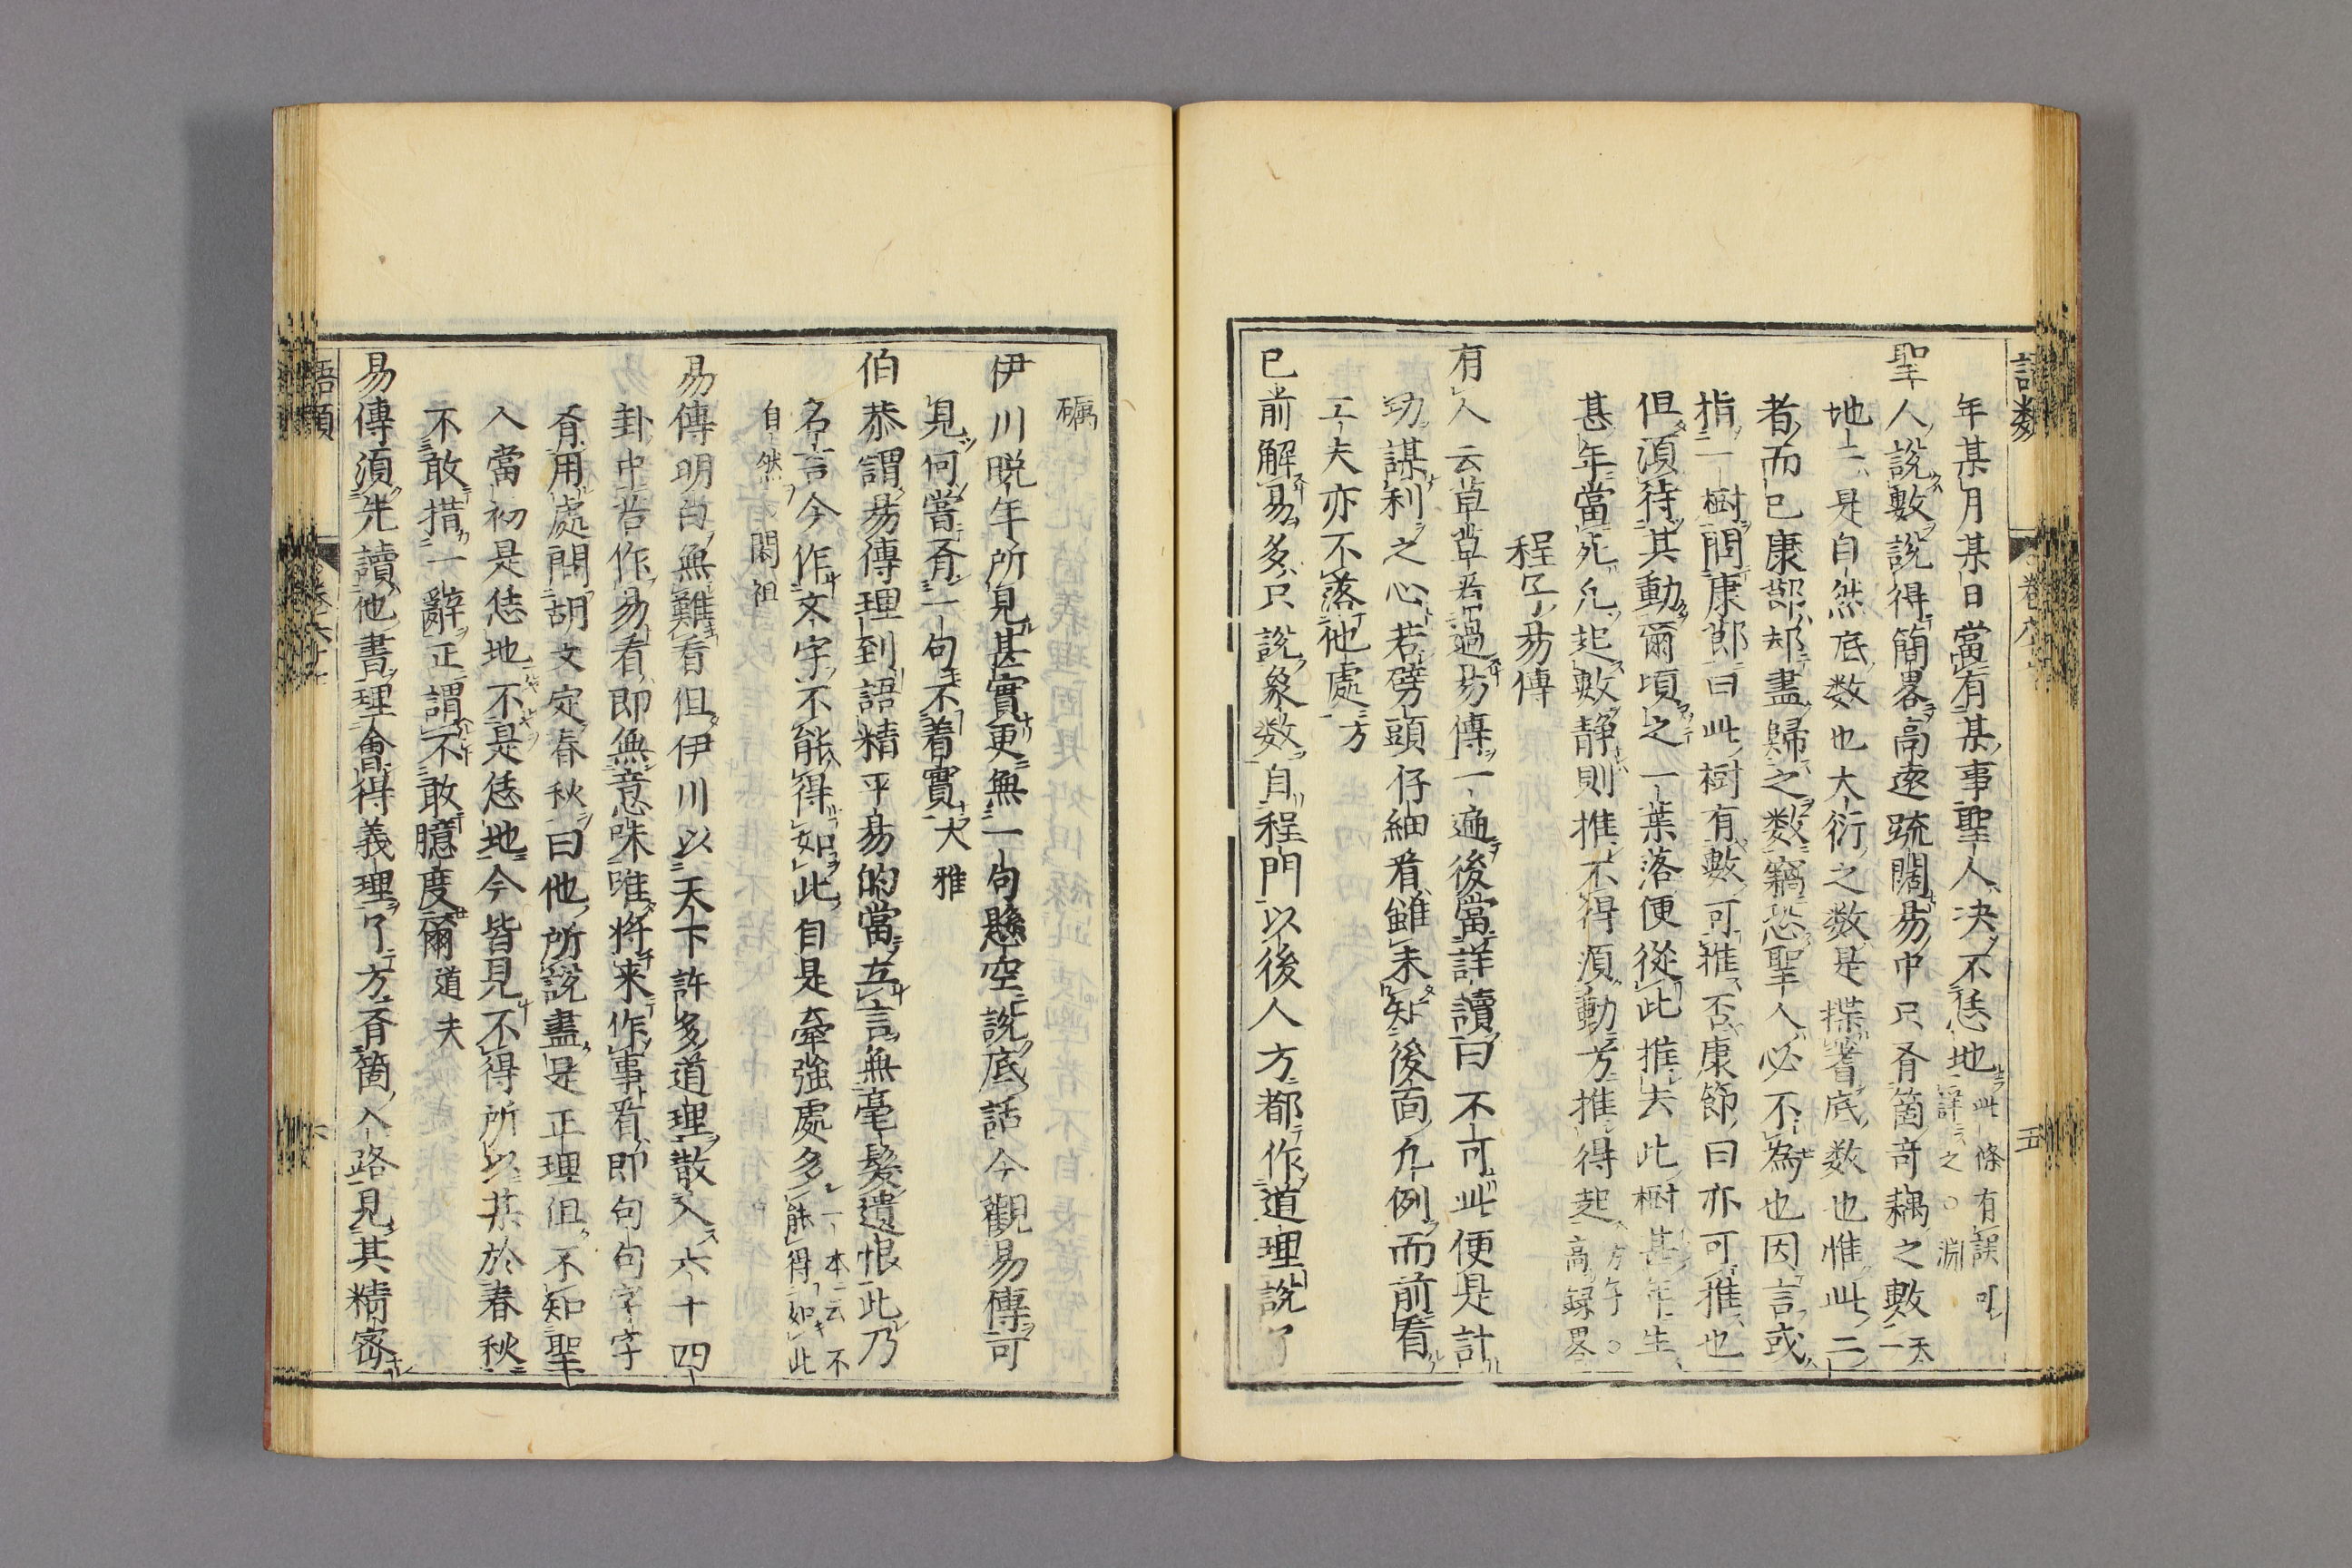 年某月某日當有某事聖人决不恁地此條有誤可詳之〇淵
聖人說數說得簡畧高遠疏闊易中只有箇奇耦之數天一
地二是自然底数也大衍之数是揲蓍底数也惟此二
者而已康節却盡歸之数竊恐聖人必不為也因言或
指一樹問康節曰此樹有數可推否康節曰亦可推也
但須待其動爾頃之一葉落便從此推去此樹甚年生
甚年當死凡起數静則推不得須動方推得起方子〇高録畧
程子易傳
有人云草草看過易傳一遍後當詳讀曰不可此便是計
功謀利之心若劈頭仔細看雖未知後面凡例而前看
工夫亦不落他處方
已前解易多只說象数自程門以後人方都作道理說了
礪
伊川晚年所見甚實更無一句懸空說底話今觀易傳可
見何嘗有一句不着實大雅
伯恭謂易傳理到語精平易的當立言無毫髮遺恨此乃
名言今作文字不能得如此自是牽強處多一本云不能得如此
自然閎祖
易傳明白無難看但伊川以天下許多道理散入六十四
卦中若作易看即無意味唯将来作事看即句句字字
有用處問胡文定春秋曰他所說盡是正理但不知聖
人當初是恁地不是恁地今皆見不得所以某於春秋
不敢措一辭正謂不敢臆度爾道夫
易傳須先讀他書理會得義理了方有箇入路見其精密
語類
卷六十七
五
六